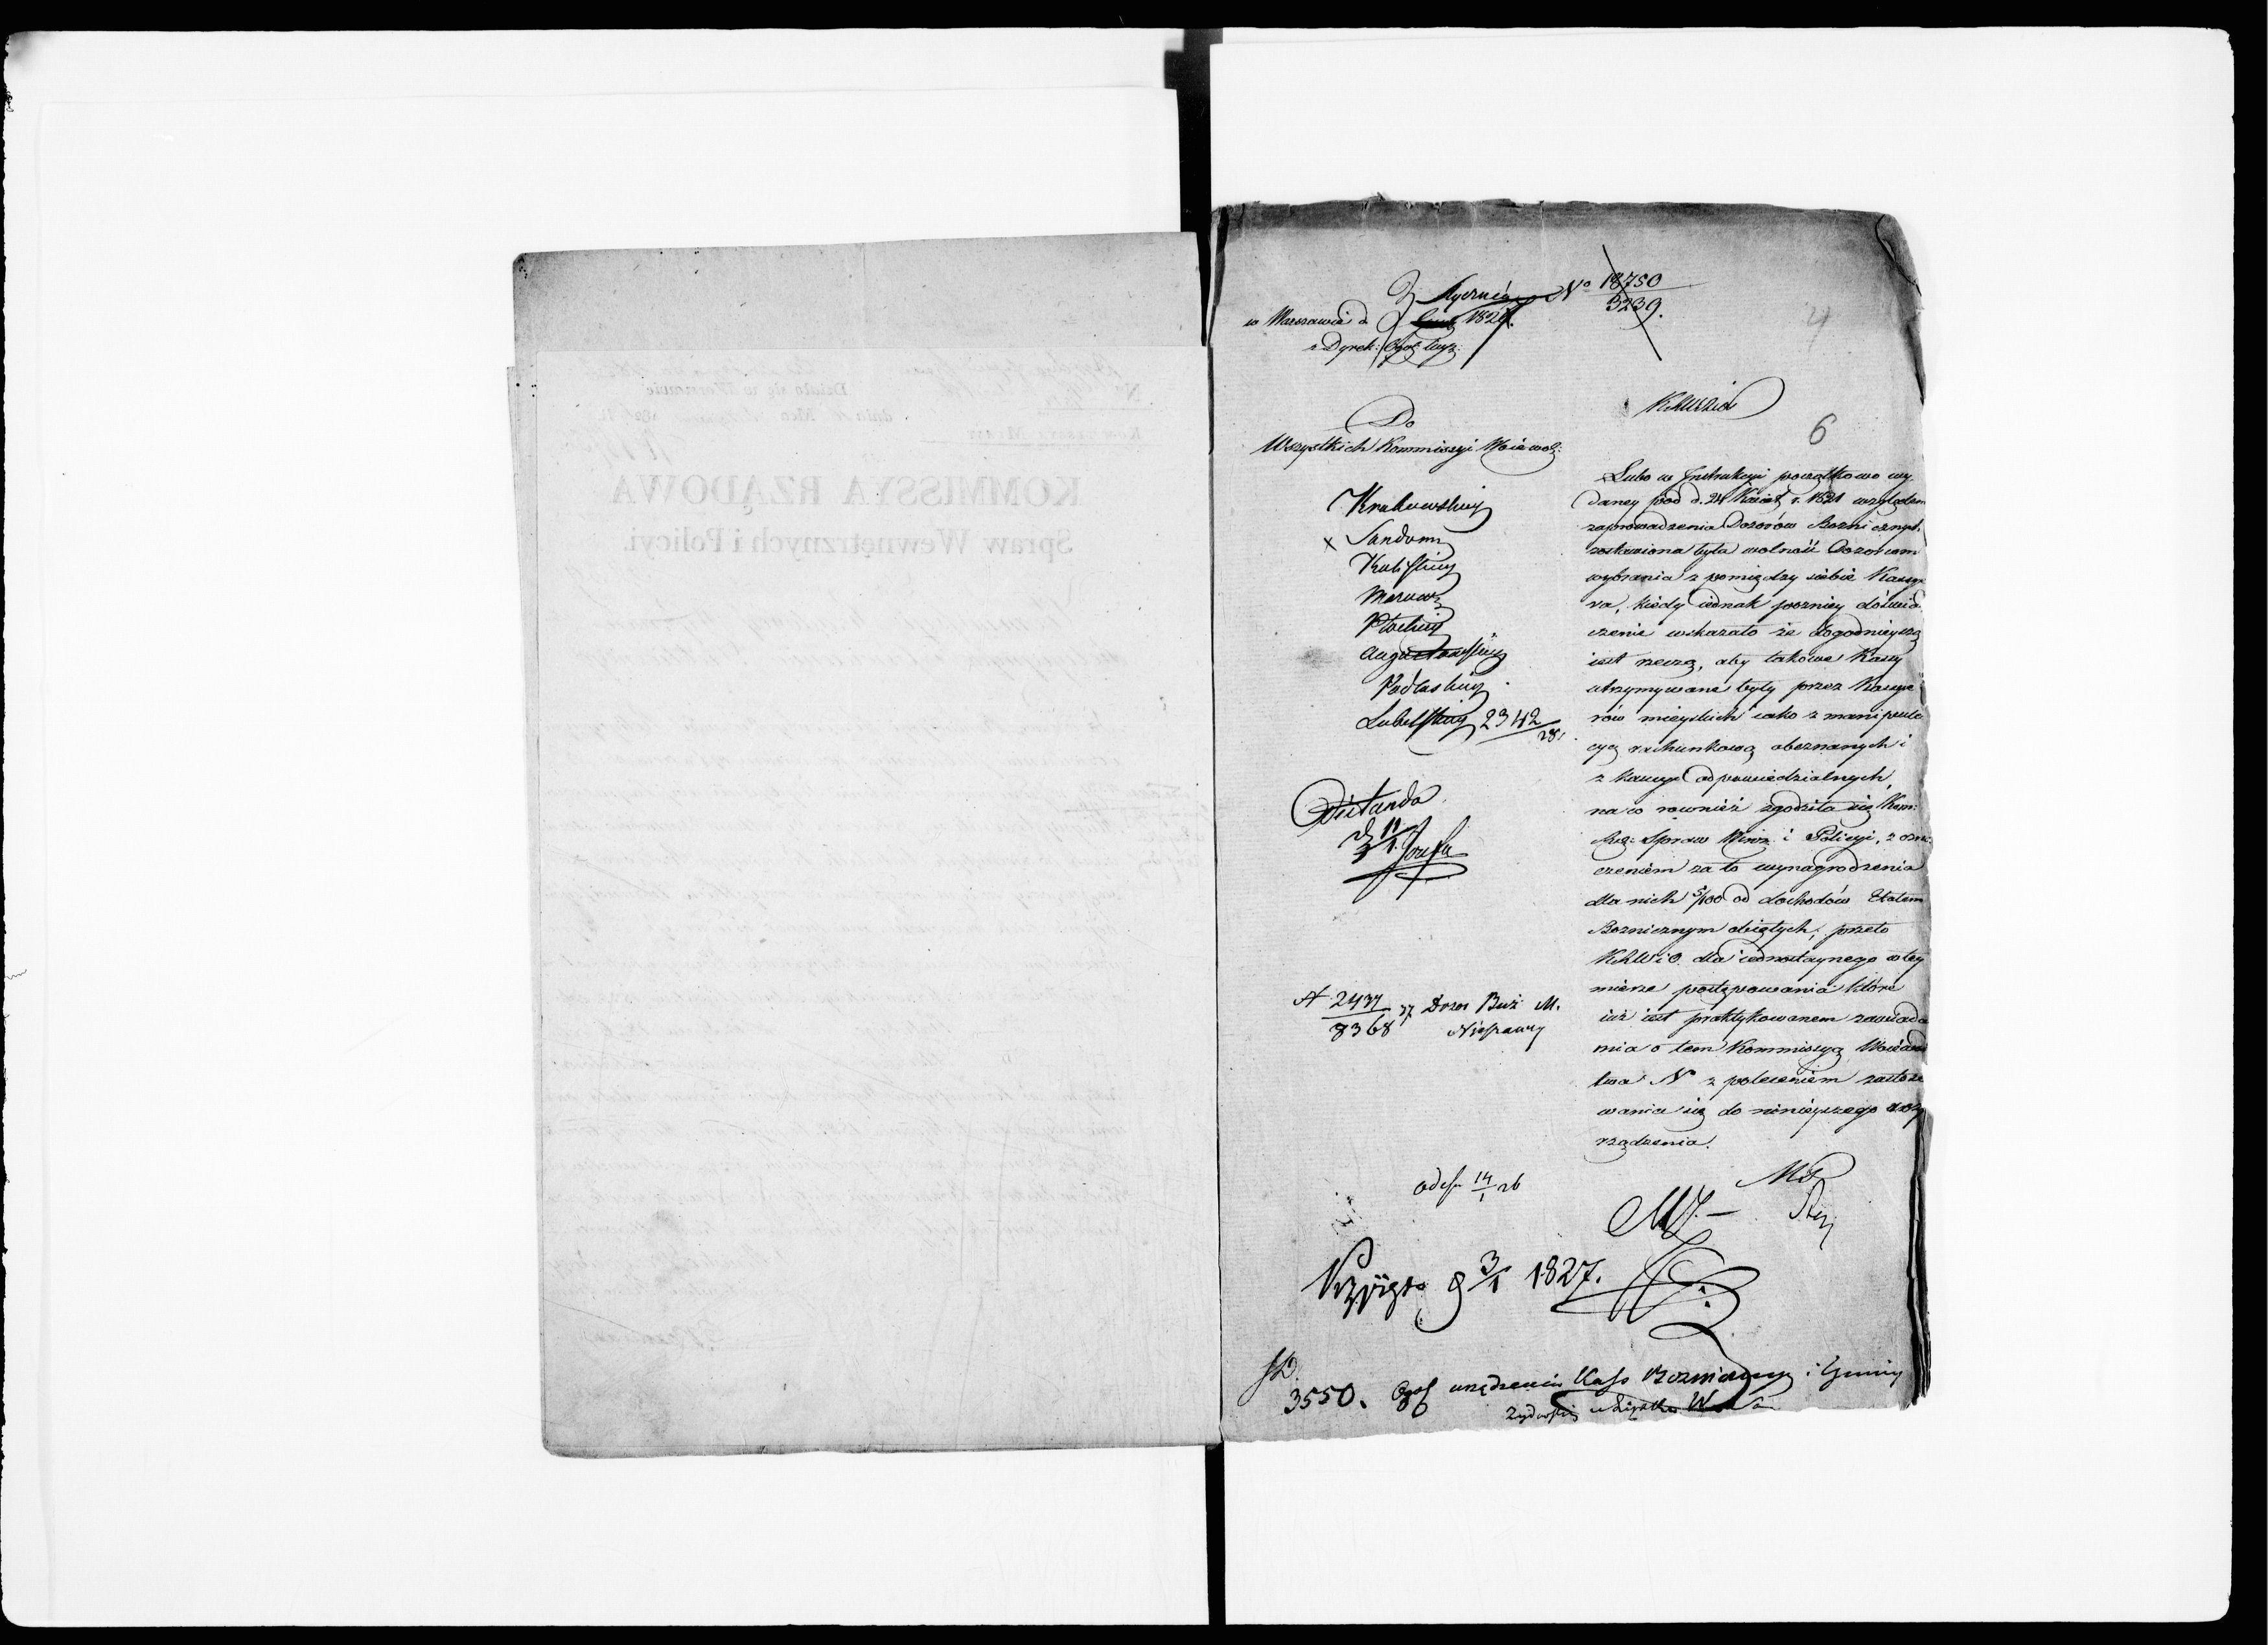 3 Stycznia No 18750
3239.
w Warszawie d. 1827.
z Dyrek:
4
6
KRWRiOP
Do
Wszystkich Kommissyi Woiewodz:
Krakowskiey
x Sandom
Kaliskiey
Mazow
Płockiey
Augustowskiey
Podlaskiey
Lubelskiey 2342
28
Lubo w Instrukcyi początkowo wy-
daney pod d. 24 Kwiet r. 1821 względem
zaprowadzenia Dozorów Bożnicznych
zostawiona była wolność Dozorcom
wybrania z pomiędzy siebie Kassye
ra, kiedy iednak pozniey doświad
czenie wskazało że dogodnieyszą
iest rzeczą, aby takowe Kassy
utrzymywane były przez Kassye
rów mieyskich iako z manipula
cyą rachunkową obeznanych i
z kaucyi odpowiedzialnych,
na co rownież zgodziła się Kom:
Rzą: Spraw Wewn: i Policyi, z ozna
czeniem za to wynagrodzenia
dla nich 5/100 od dochodów Etatem
Boznicznym obiętych, przeto
dla iednostaynego w tey
mierze postępowania które
iuż iest praktykowanem zawiada
mia o tem Kommissyą Woiewodz
twa N z poleceniem zastoso
wania się do ninieyszego rozpo
rządzenia.
11
1
A 2437
8368 27 Dozor Buż M.
Nieszawy
14
1 26
MP
Przyięto d 3/1 1827.
3550. urządzenia Kass Boznicznych i Gminy